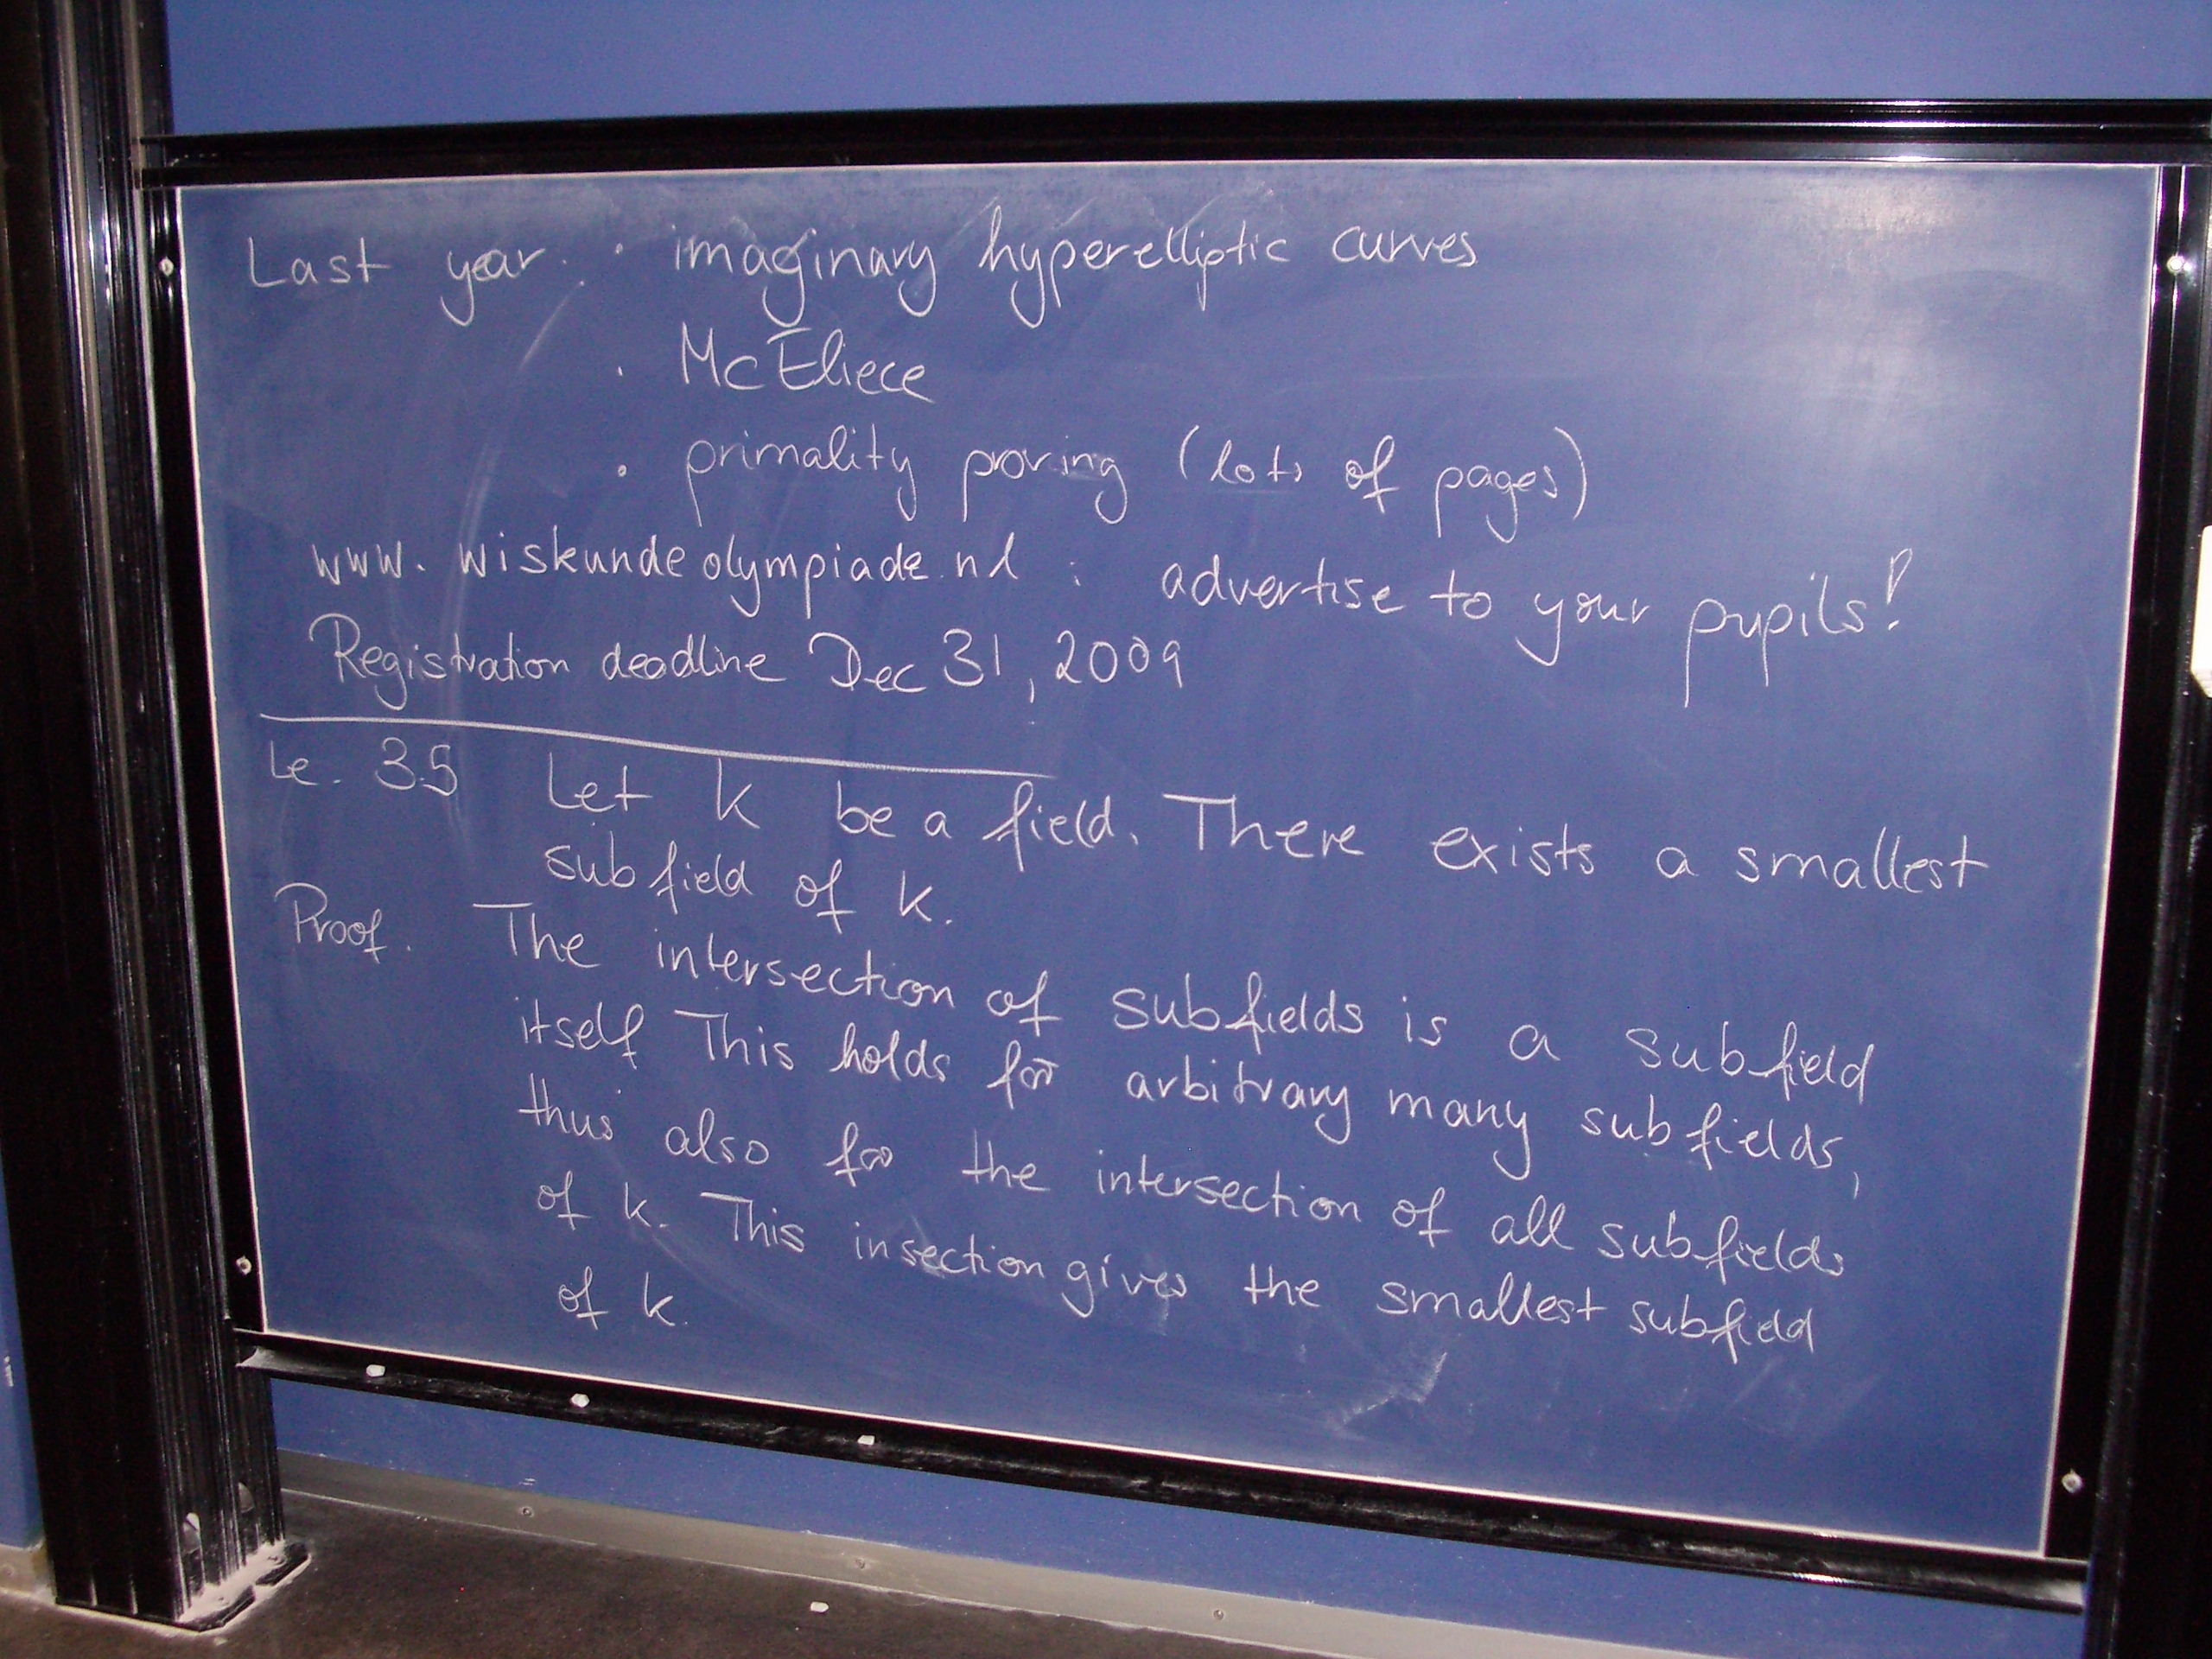 Last year: · imaginary hyperelliptic curves
· McEliece
· primality proving (lots of pages)
www.wiskundeolympiade.nl : advertise to your pupils!
Registration deadline Dec 31, 2009
Le. 35 Let k be a field. There exists a smallest
subfield of k.
Proof. The intersection of subfields is a subfield
itself This holds for arbitrary many subfields,
thus also for the intersection of all subfields
of k. This insection gives the smallest subfield
of k.